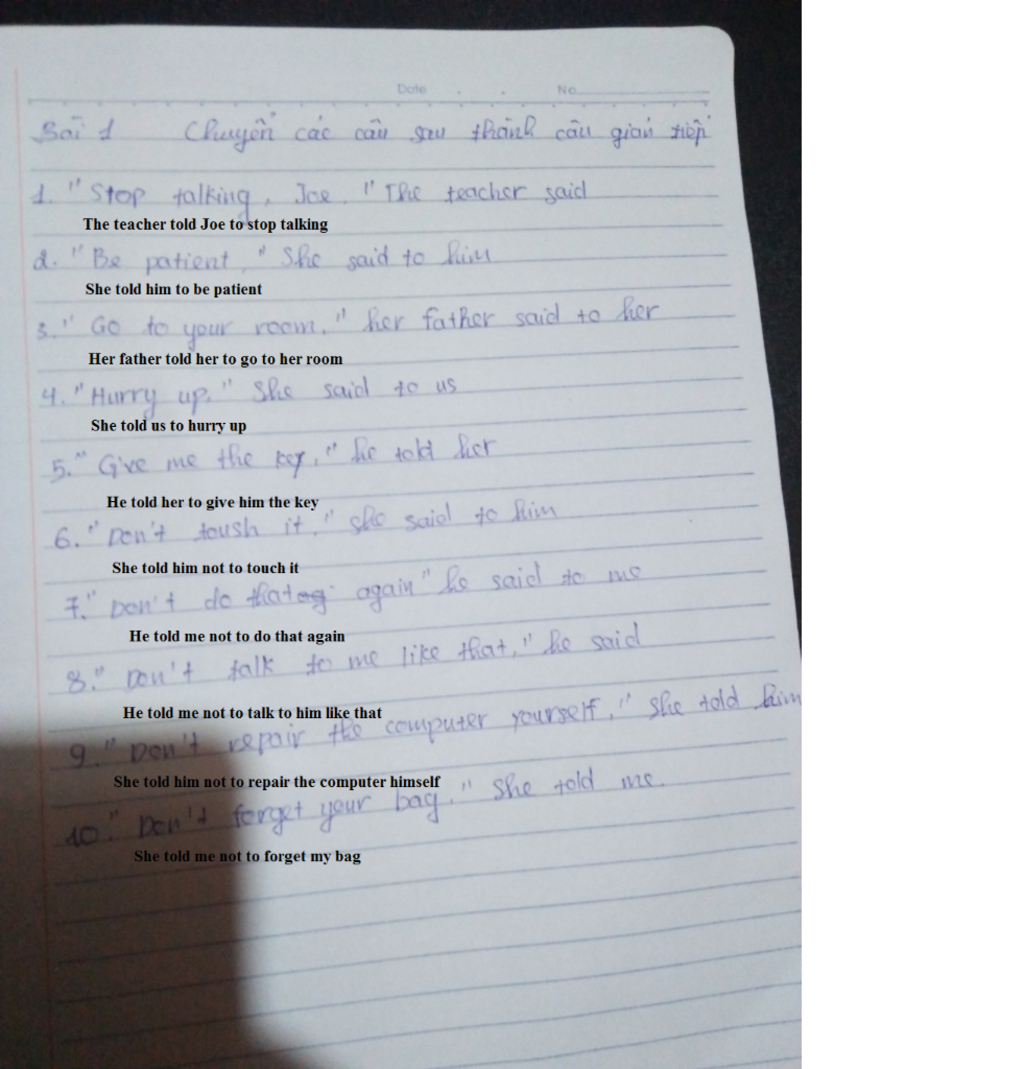 Date . . No
Bài 1 Chuyển các câu sau thành câu gián tiếp
1. "Stop talking, Joe." The teacher said
The teacher told Joe to stop talking
2. "Be patient," She said to him
She told him to be patient
3. "Go to your room," her father said to her
Her father told her to go to her room
4. "Hurry up." She said to us
She told us to hurry up
5. "Give me the key," he told her
He told her to give him the key
6. "Don't toush it," she said to him
She told him not to touch it
7. "Don't do that again" he said to me
He told me not to do that again
8. "Don't talk to me like that," he said
He told me not to talk to him like that
9. "Don't repair the computer yourself," She told him
She told him not to repair the computer himself
10. "Don't forget your bag," She told me.
She told me not to forget my bag